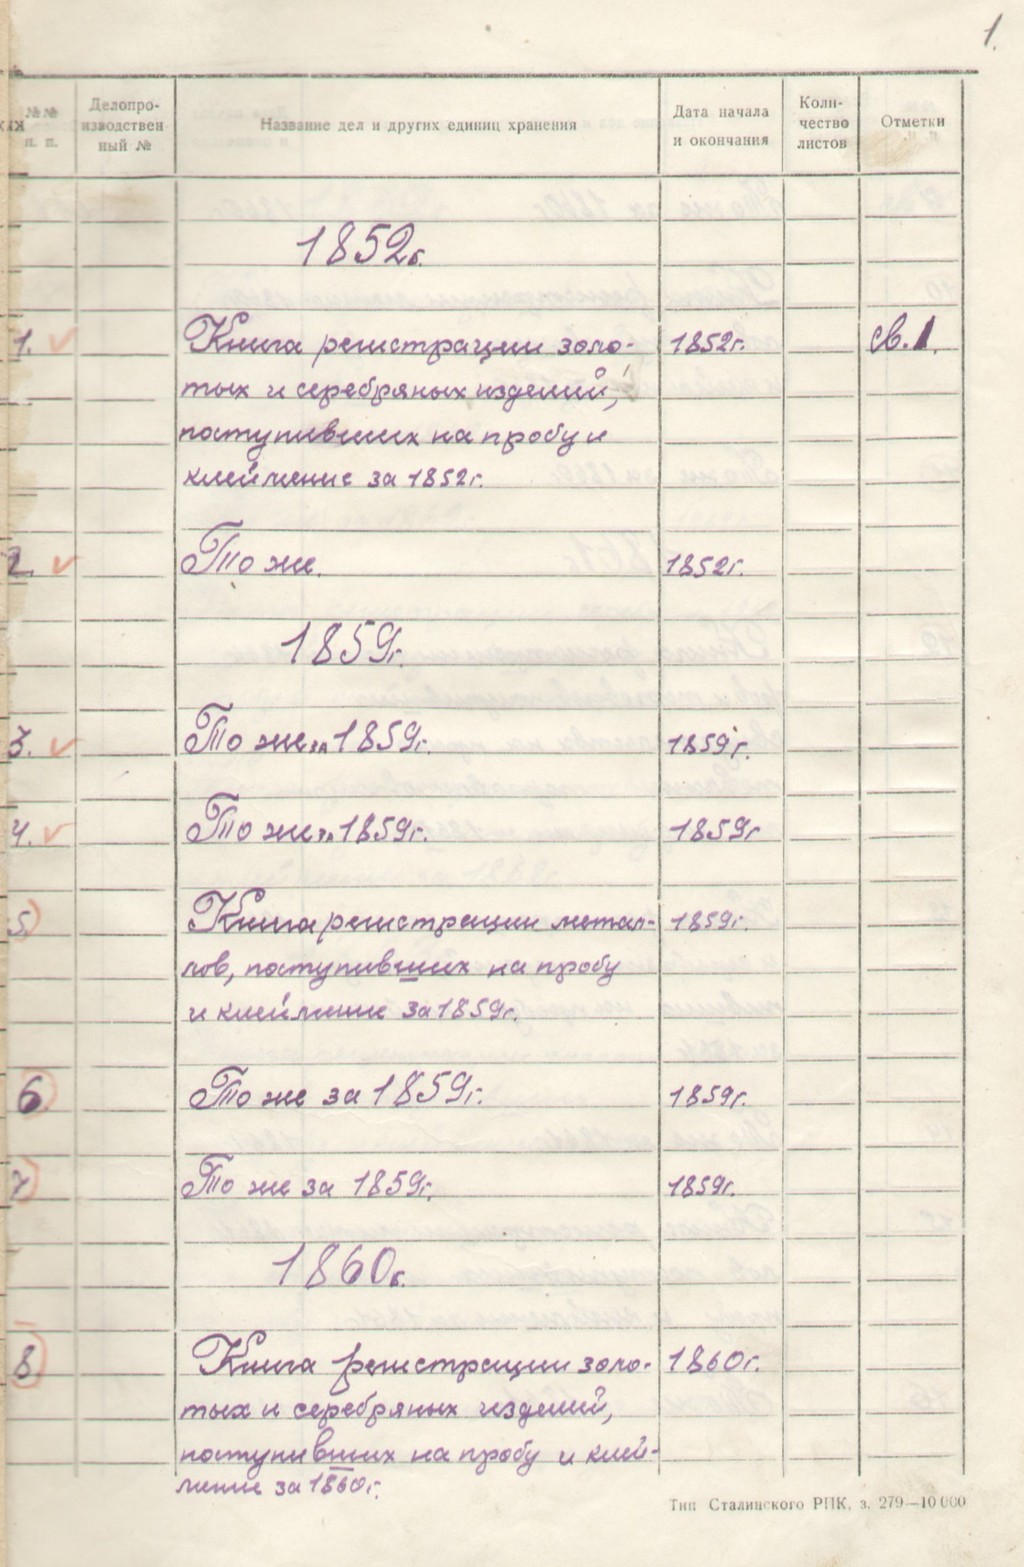 1.
№№ п. п.
Делопро-
изводствен
ный №
Название дел и других единиц хранения
Дата начала
и окончания
Коли-
чество
листов
Отметки
1852г.
1. Книга регистрации золо- 1852г. св.1.
тых и серебряных изделий,
поступивших на пробу и
клеймение за 1852г.
2. То же. 1852г.
1859г.
3. То же за 1859г. 1859г.
4. То же за 1859г. 1859г
5. Книга регистрации метал- 1859г.
лов, поступивших на пробу
и клеймение за 1859г.
6 То же за 1859г. 1859г.
7 То же за 1859г. 1859г.
1860г.
8 Книга регистрации золо- 1860г.
тых и серебряных изделий,
поступивших на пробу и клей-
мение за 1860г.
Тип Сталинского РПК, з. 279—10 000